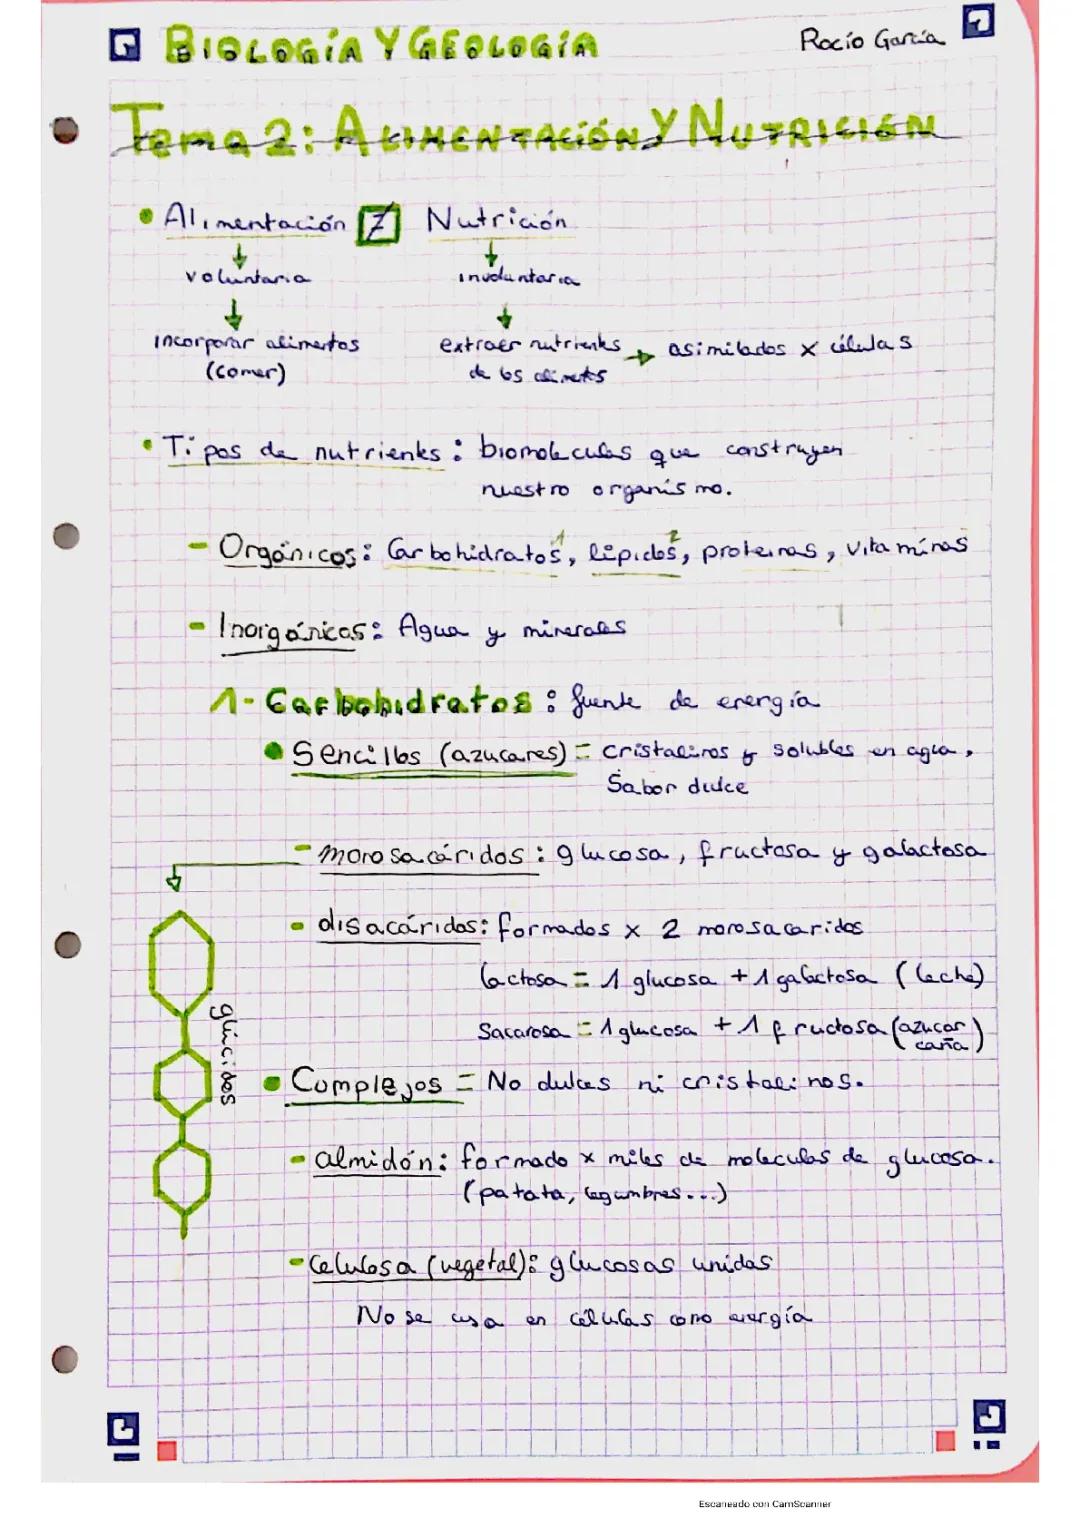 BIOLOGÍA Y GEOLOGÍA
Rocío García
Tema 2: ALIMENTACIÓN Y NUTRICIÓN
• Alimentación ≠ Nutrición
↓ ↓
voluntaria involuntaria
↓ ↓
incorporar alimentos extraer nutrientes → asimilados x células
(comer) de los alimentos
• Tipos de nutrientes: biomoleculas que construyen
nuestro organismo.
- Orgánicos: Carbohidratos¹, lípidos², proteinas, vitaminas
- Inorgánicos: Agua y minerales
1- Carbohidratos: fuente de energía
• Sencillos (azucares) = cristalinos y solubles en agua,
Sabor dulce
- monosacáridos: glucosa, fructosa y galactosa
- disacáridos: formados x 2 monosacaridos
lactosa = 1 glucosa + 1 galactosa (leche)
Sacarosa = 1 glucosa + 1 fructosa (azucar
caña)
glúcidos
• Complejos = No dulces ni cristalinos.
- almidón: formado x miles de moleculas de glucosa.
(patata, legumbres...)
- Celulosa (vegetal): glucosas unidas
No se usa en células como energía
Escaneado con CamScanner